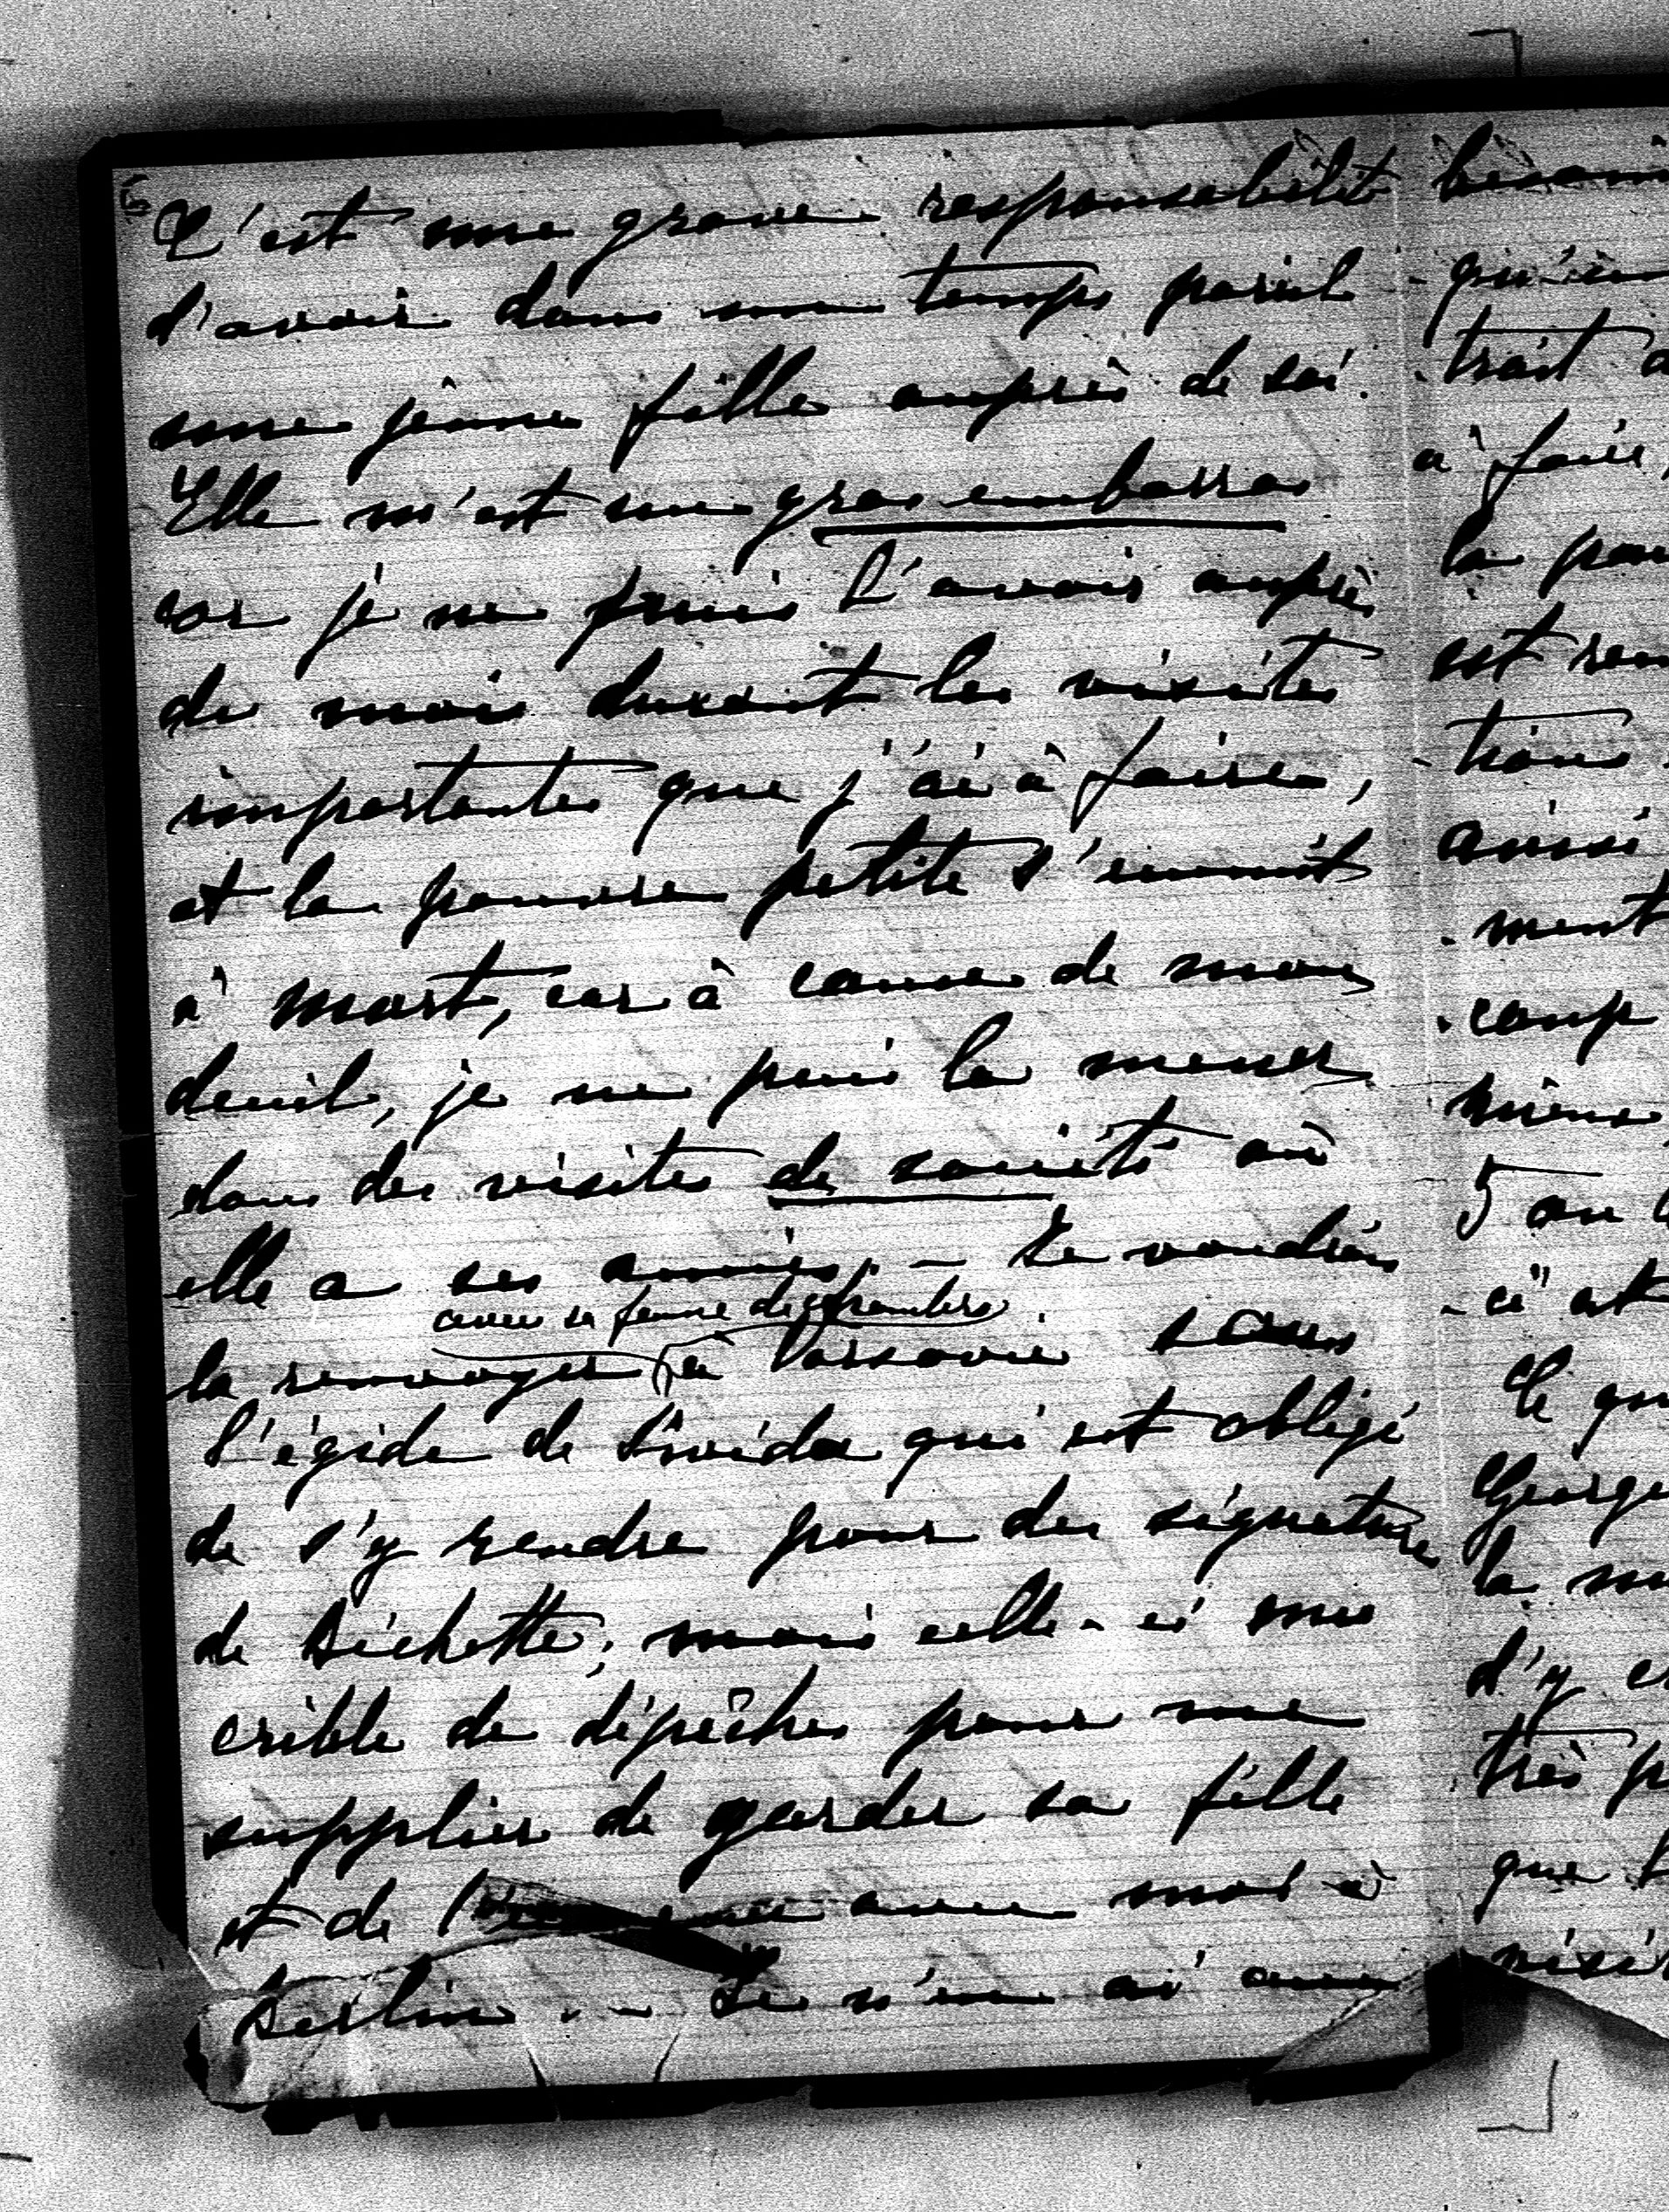 C'est une grave responsabilité
d'avoir dans un temps pareil
une jeune fille auprès de soi.
Elle m'est un gros embarras
car je ne puis l'avoir auprès
de moi durant les visites
importantes que j'ai à faire,
et la pauvre petite s'ennuit
à mort, car à cause de mon
deuil, je ne puis la mener
dans des visites de société où
elle a ses amies. – Je voudrais
avec sa femme de chambre
la renvoyer à Varsovie sous
l'égide de qui est obligé
de s'y rendre pour des signatures
de Bichette; mais celle-ci me
crible de dépêches pour me
supplier de garder sa fille
et de avec moi à
Berlin. – Je n'en ai
qu'un
trait
à faire,
la
est
tions
ainsi
ment
coup
5 au
c'est
Ce qu
George
la
d'y
très
que
visi